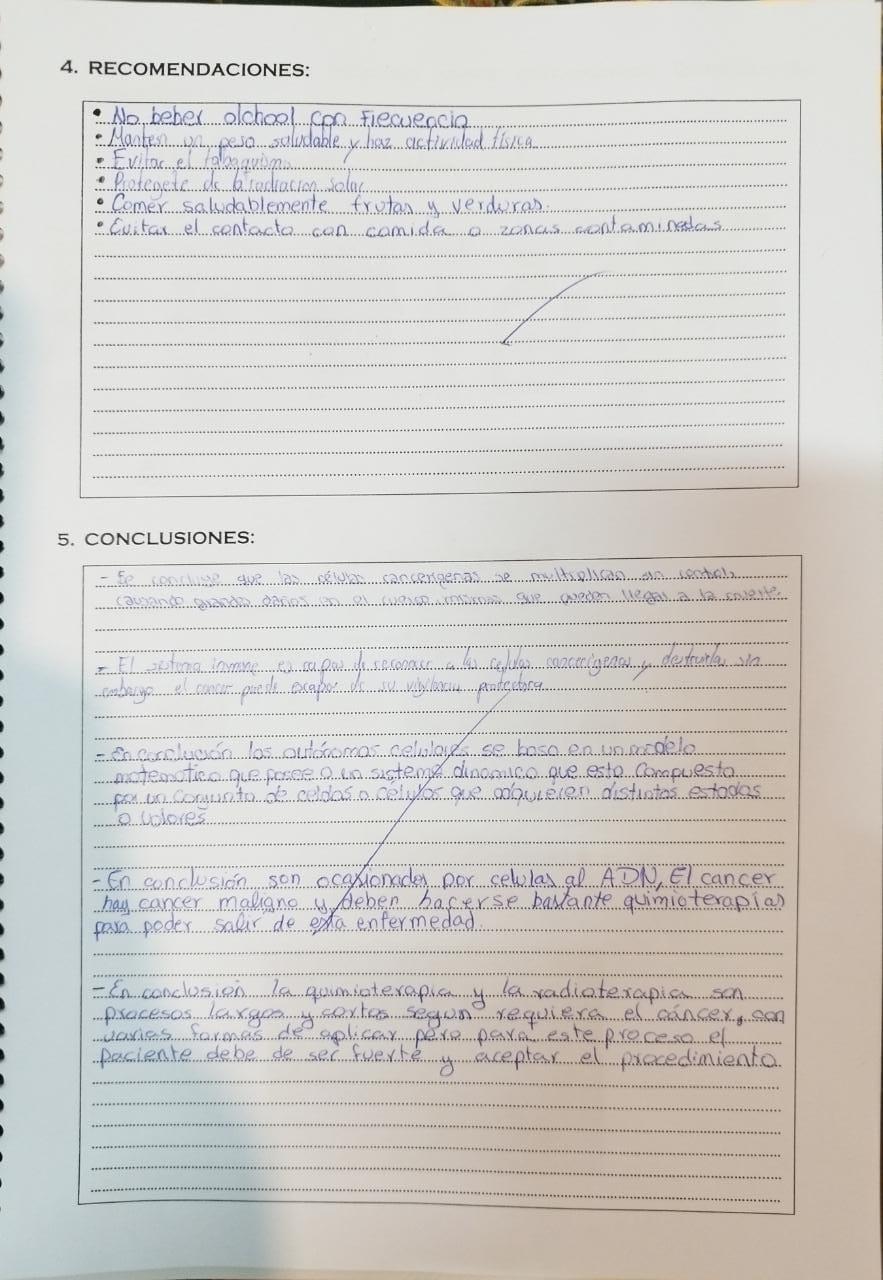 4. RECOMENDACIONES:
• No beber olchool con Fiecuencia
• Manten un peso saludable y haz actividad física
• Evitar el tabaquismo
• Protegete de la radiacion solar
• Comer saludablemente frutas y verduras.
• Evitar el contacto con comida o zonas contaminadas
5. CONCLUSIONES:
- Se concluye que las células cancerigenas se multiplican sin control,
causando grandes daños en el cuerpo, mismas que pueden llegar a la muerte.
- El sistema inmune es capas de reconocer a las celulas cancerígenas y destruirlas sin
embargo el cancer puede escapar de su vigilancia protectora
- En conclusión los autónomas celulares se basa en un modelo
matematico que posee a un sistema dinamico que esta compuesto
por un conjunto de celdas o celulas que adquieren distintos estados
o valores
- En conclusión son ocasionados por celulas al ADN, El cancer
hay cancer maligno y deben hacerse bastante quimioterapías
para poder salir de esta enfermedad.
- En conclusión la quimioterapia y la radioterapia son
procesos largos y cortos segun requiera el cáncer, con
varias formas de aplicar pero para este proceso el
paciente debe de ser fuerte y aceptar el procedimiento.